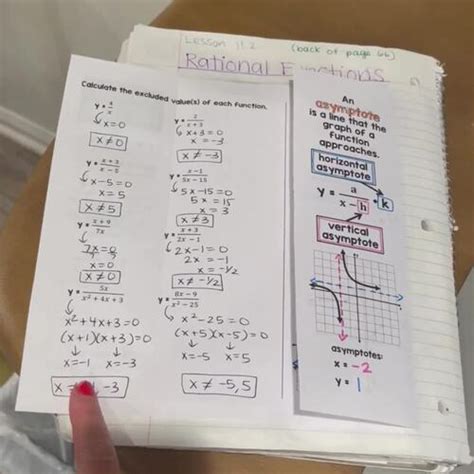 Lesson 11.2 (back of page 66)
Rational Functions
Calculate the excluded value(s) of each function.
y =
x=0
x ≠ 0
y = x + 3 / x - 5
x-5=0
x=5
x ≠ 5
y = x + 9 / 7x
7x=0
x=0
x ≠ 0
y = 5x / x² + 4x + 3
x²+4x+3=0
(x+1)(x+3)=0
x=-1 x=-3
x ≠ , -3
y = 2 / x + 3
x+3=0
x=-3
x ≠ -3
y = x - 1 / 5x - 15
5x-15=0
5x=15
x=3
x ≠ 3
y = x + 3 / 2x - 1
2x-1=0
2x=-1
x=-1/2
x ≠ -1/2
y = 8x - 9 / x² - 25
x²-25=0
(x+5)(x-5)=0
x=-5 x=5
x ≠ -5,5
An
asymptote
is a line that the
graph of a
function
approaches.
horizontal
asymptote
y = a / x - h + k
vertical
asymptote
asymptotes:
x = -2
y = 1